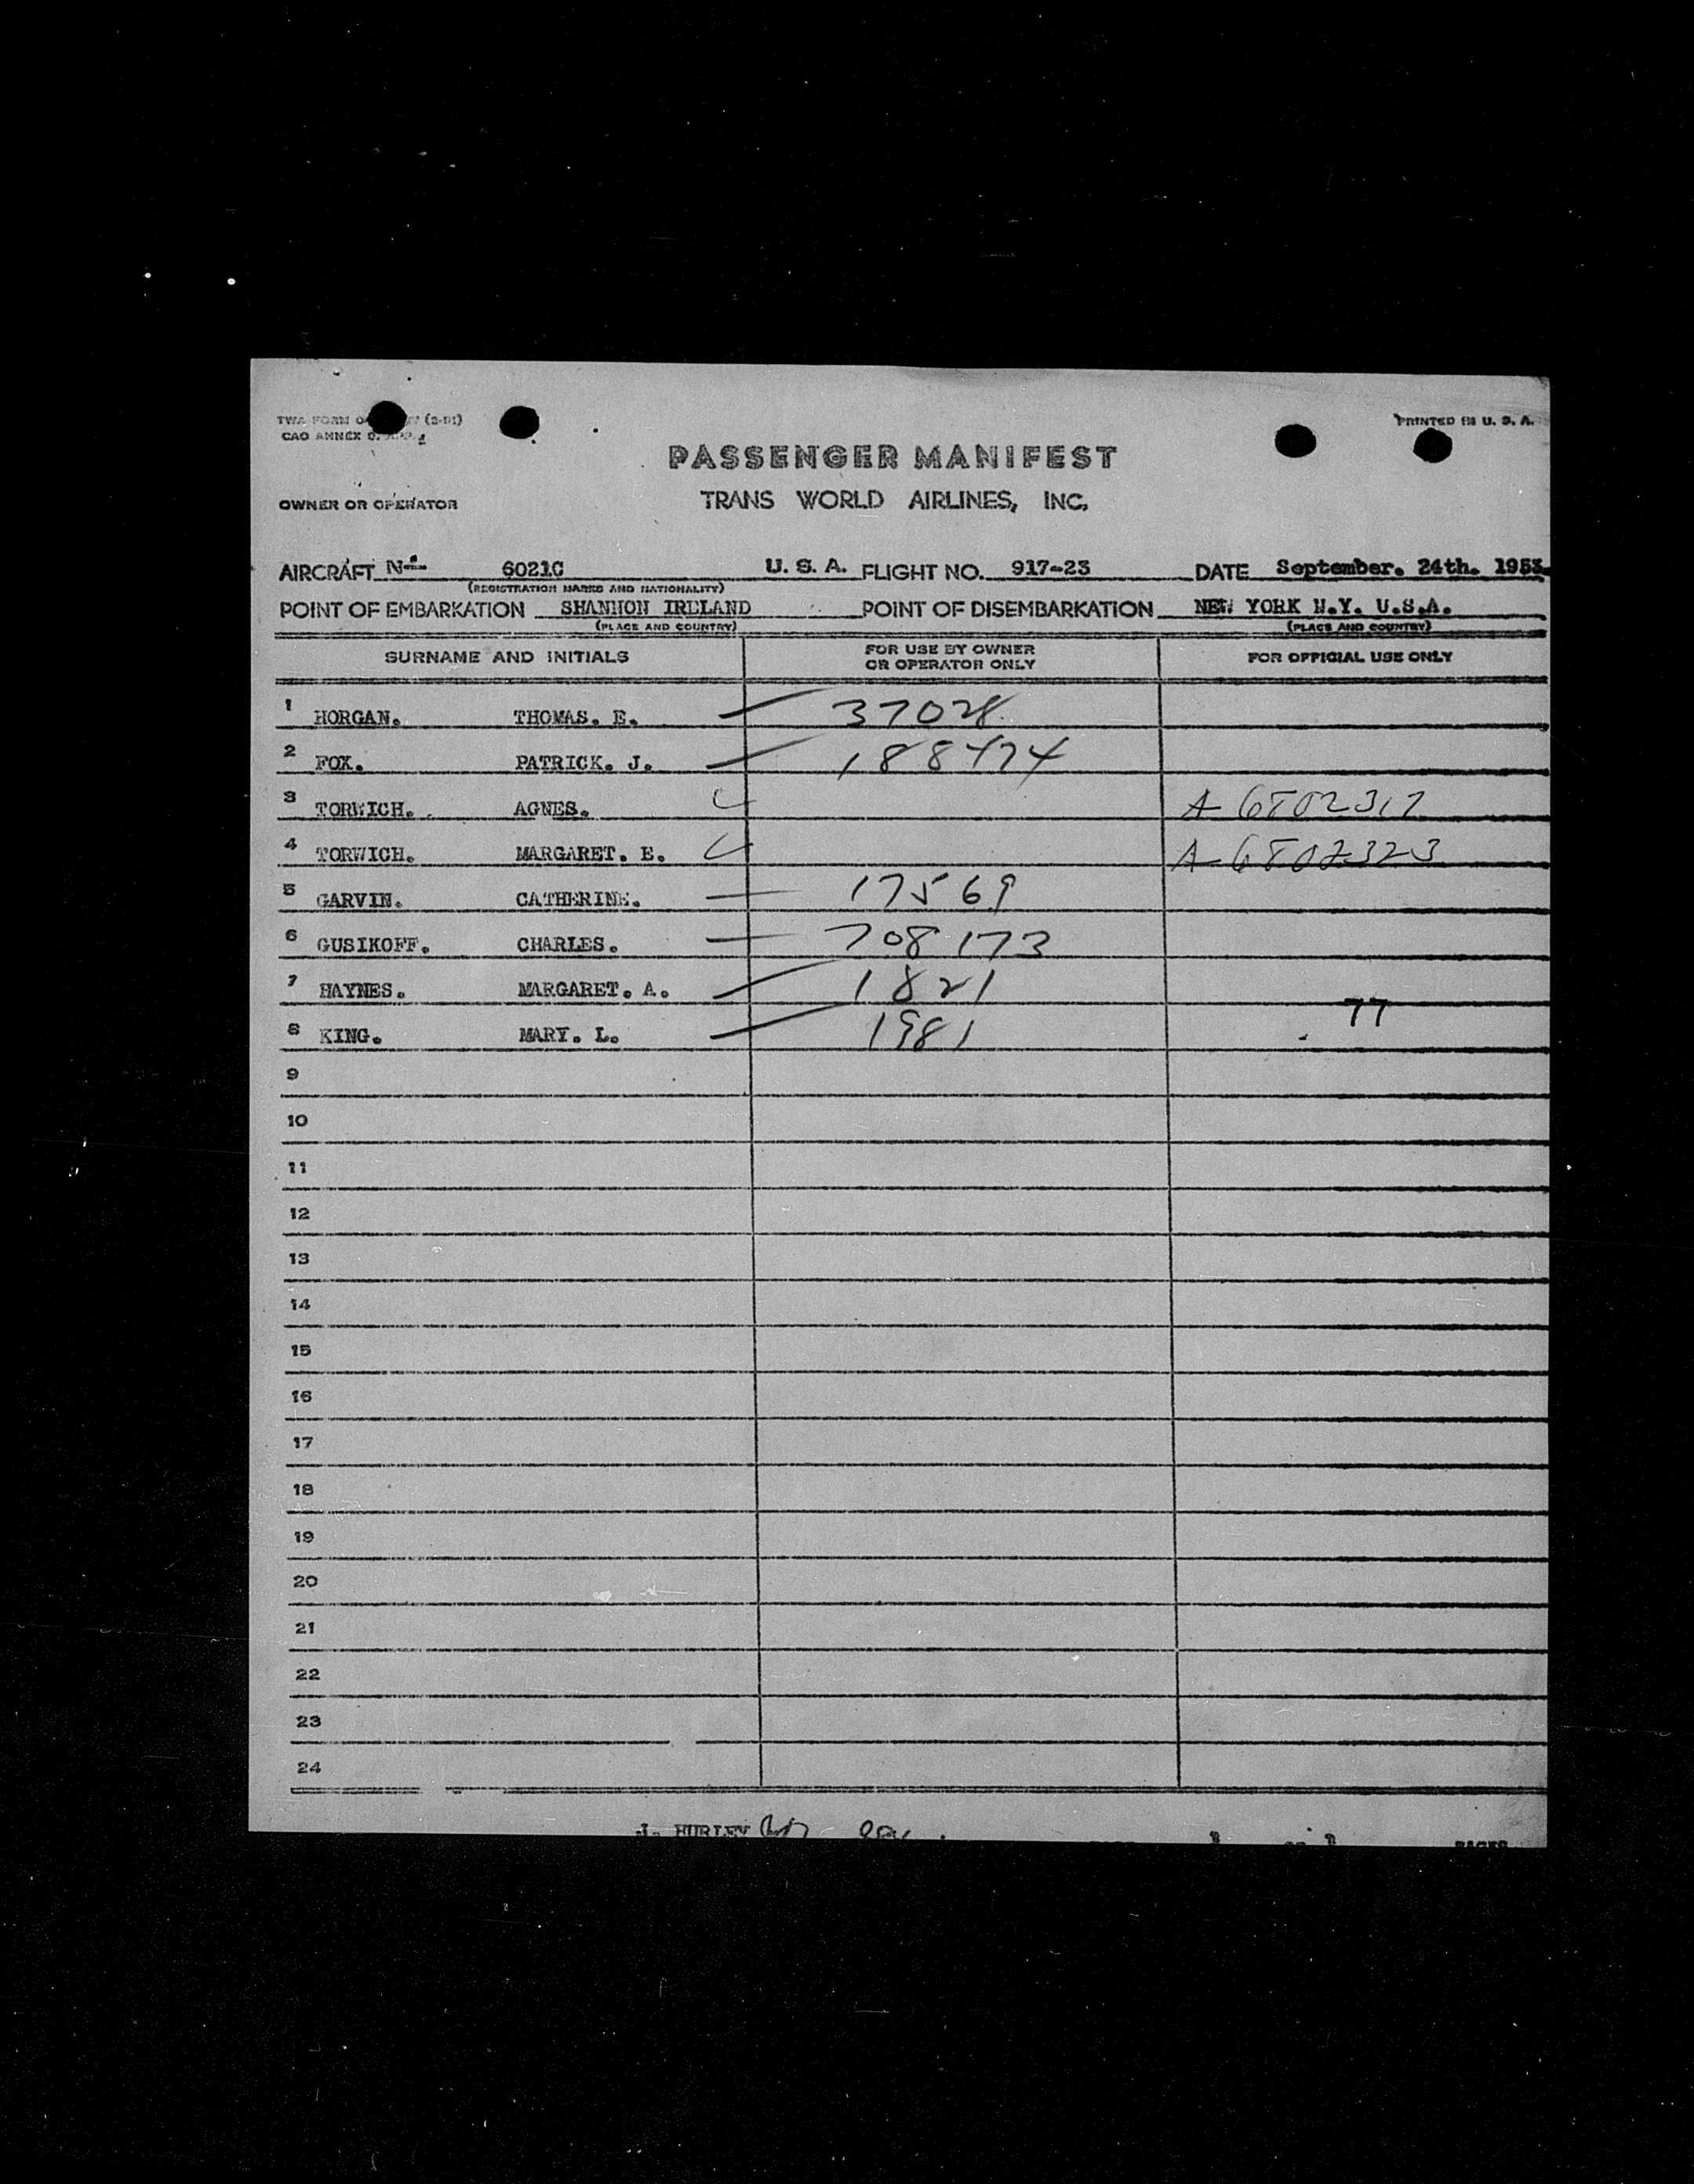 TWA FORM (2-51)
PRINTED IN U. S. A.
CAO ANNEX 9.
PASSENGER MANIFEST
OWNER OR OPERATOR
TRANS WORLD AIRLINES, INC.
AIRCRAFT N-- 6021C U. S. A. FLIGHT NO. 917-23 DATE September. 24th. 1953.
(REGISTRATION MARKS AND NATIONALITY)
POINT OF EMBARKATION SHANNON IRELAND POINT OF DISEMBARKATION NEW YORK N.Y. U.S.A.
(PLACE AND COUNTRY) (PLACE AND COUNTRY)
SURNAME AND INITIALS FOR USE BY OWNER OR OPERATOR ONLY FOR OFFICIAL USE ONLY
1 HORGAN. THOMAS. E. 37028
2 FOX. PATRICK. J. 188474
3 TORWICH. AGNES. A-6802317
4 TORWICH. MARGARET. E. A-6802323
5 GARVIN. CATHERINE. 17569
6 GUSIKOFF. CHARLES. 708173
7 HAYNES. MARGARET. A. 1821
77
8 KING. MARY. L. 1981
9
10
11
12
13
14
15
16
17
18
19
20
21
22
23
24
J. HURLEY
PAGES